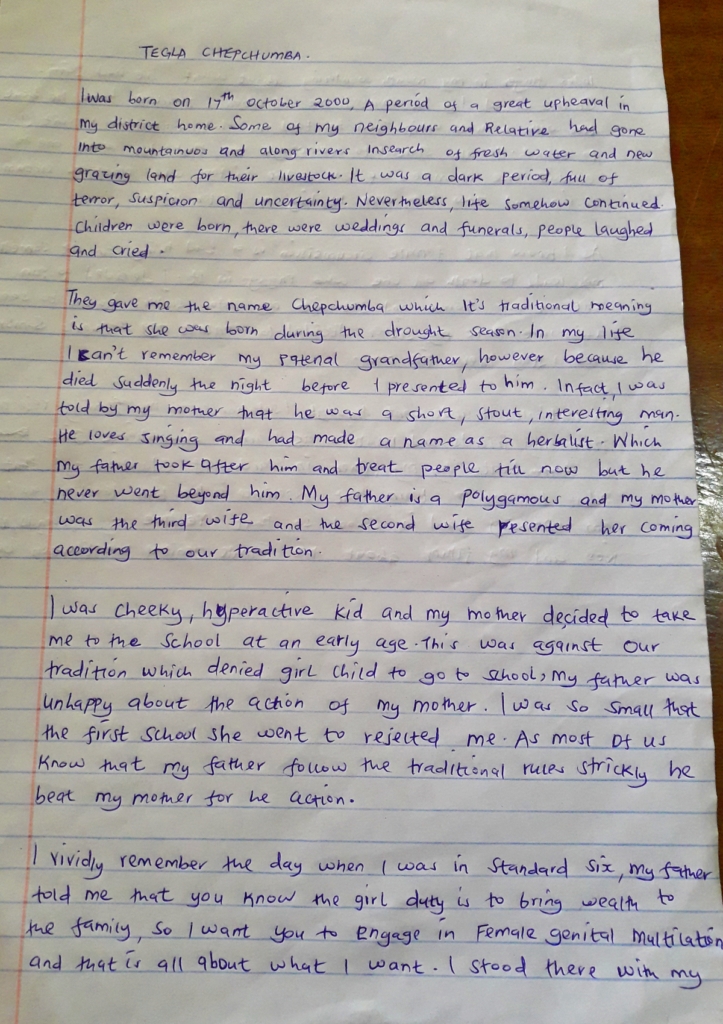 TEGLA CHEPCHUMBA.
I was born on 17th October 2000, A period of a great upheaval in
my district home. Some of my neighbours and Relative had gone
into mountainuos and along rivers insearch of fresh water and new
grazing land for their livestock. It was a dark period, full of
terror, suspicion and uncertainty. Nevertheless, life somehow continued.
Children were born, there were weddings and funerals, people laughed
and cried.
They gave me the name Chepchumba which It's traditional meaning
is that she was born during the drought season. In my life
I can't remember my patenal grandfather, however because he
died suddenly the night before I presented to him. Infact, I was
told by my mother that he was a short, stout, interesting man.
He loves singing and had made a name as a herbalist. Which
my father took after him and treat people till now but he
never went beyond him. My father is a polygamous and my mother
was the third wife and the second wife presented her coming
according to our tradition.
I was cheeky, hyperactive kid and my mother decided to take
me to the school at an early age. This was against our
tradition which denied girl child to go to school, my father was
unhappy about the action of my mother. I was so small that
the first school she went to rejected me. As most of us
know that my father follow the traditional rules strickly he
beat my mother for he action.
I vividly remember the day when I was in standard six, my father
told me that you know the girl duty is to bring wealth to
the family, so I want you to engage in Female genital multilation
and that is all about what I want. I stood there with my